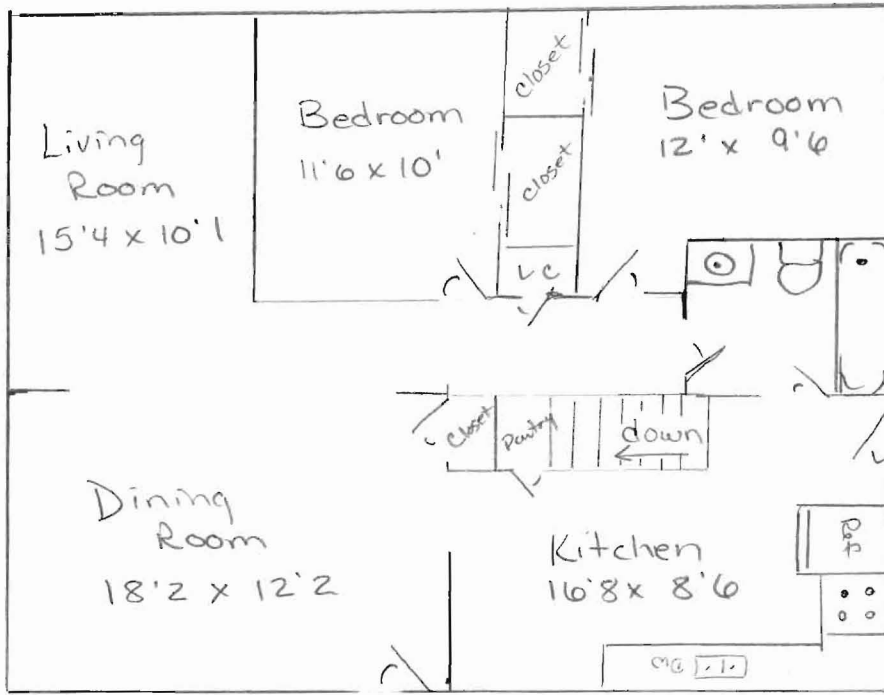 Living
Room
15'4 x 10'1
Bedroom
11'6 x 10'
Closet
Closet
LC
Bedroom
12' x 9'6
Closet
Pantry
down
Dining
Room
18'2 x 12'2
Kitchen
16'8 x 8'6
Ref
DW